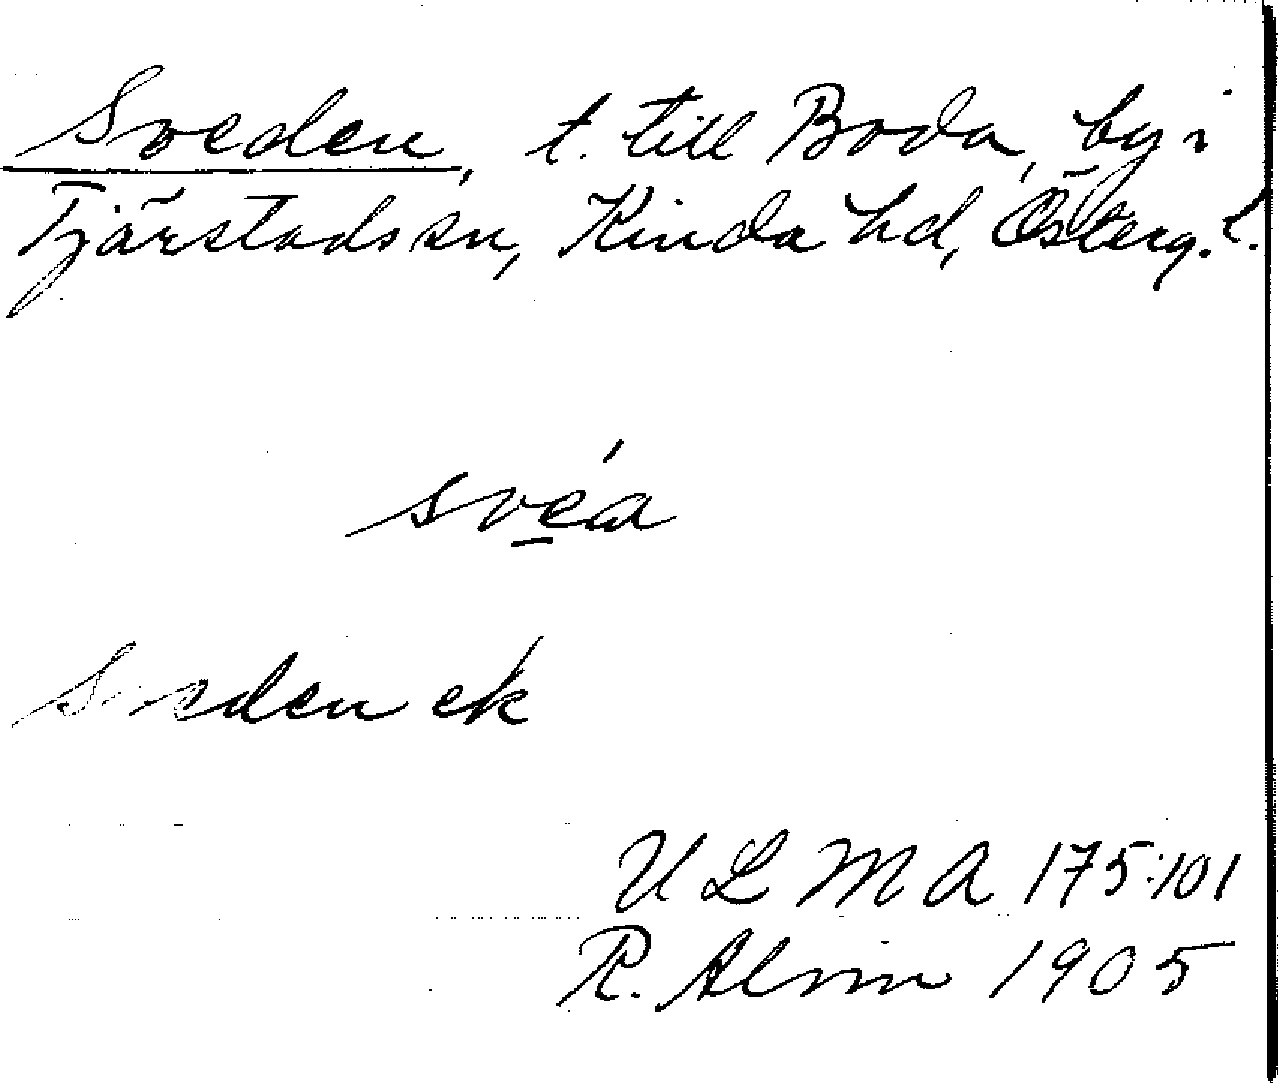 Sveden, t. till Boda, by i
Tjärstads sn, Kinda hd, Österg. l.
svéa
Sveden ek
ULMA 175:101
R. Almin 1905